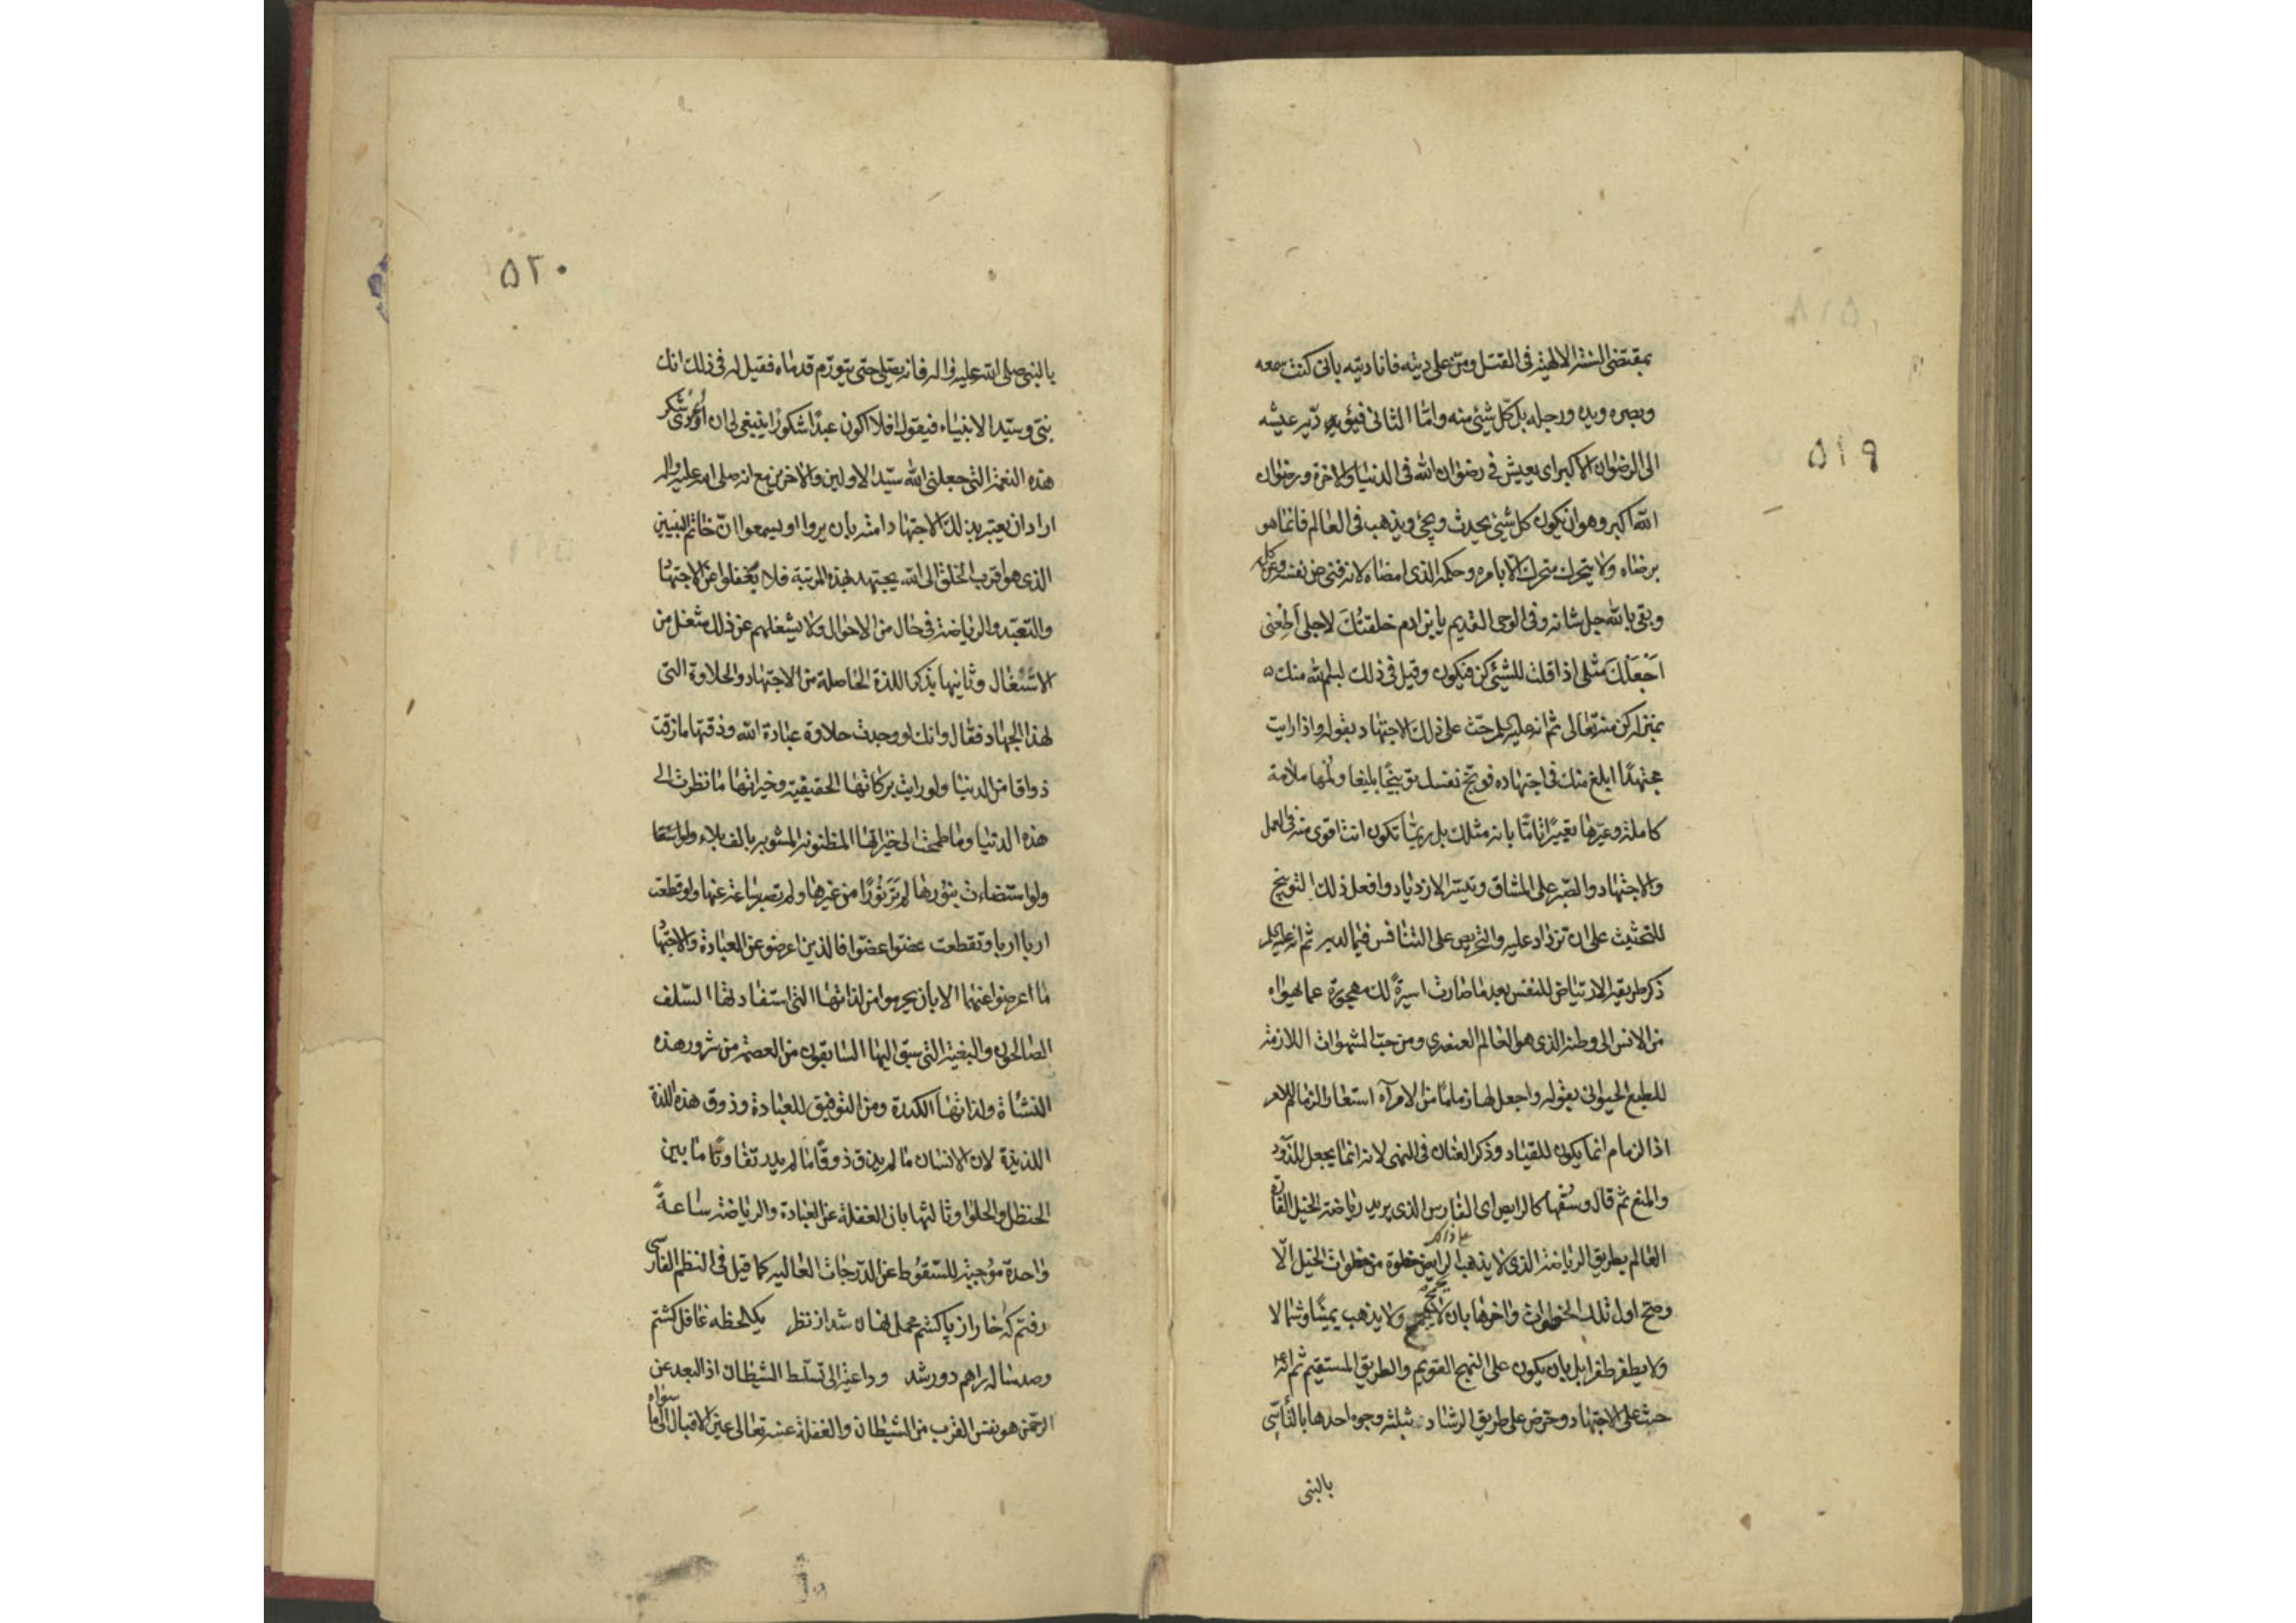 ٥١٩
بمقتضى السنة الالهية فى القتل ومن على ديته فانا ديته بانى كنت سمعه
وبصره ويده ورجله بل كل شیئ منه واما الثانى فيؤديه عيشه
الى الرضوان الاكبر اى يعيش فى رضوان الله فى الدنيا والاخرة ورضوان
الله اكبر وهو ان يكون كل شیئ يحدث ويجئ ويذهب فى العالم فانما هو
برضاه ولا يتحرك متحرك الا بامره وحكمه الذى امضاه لانه فنى عن نفسه وعن كل
وبقى بالله جل شانه وفى الوحى القديم يابن ادم خلقتك لاجلى اطعنى
اجعلك مثلى اذا قلت للشیئ كن فيكون وقيل فى ذلك بسم الله منك
بمنزلة كن منه تعالى ثم انه عليه السلم حث على ذلك الاجتهاد بقوله واذا رايت
مجتهدا ابلغ منك فى اجتهاده فوبخ نفسك توبيخا بليغا ولمها ملامة
كاملة وعيرها تعييرا تاما بانه مثلك بل ربما تكون انت اقوى منه فى العمل
والاجتهاد والصبر على المشاق وتيسر الازدياد وافعل ذلك التوبيخ
للتحثيث على ان تزداد عليه والتحريص على التنافس فيما لديه ثم انه عليه السلم
ذكر طريقة الارتياض للنفس بعد ما صارت اسيرة لك مهجورة عما يهواه
من الانس الى وطنه الذى هو العالم العنصرى ومن حب الشهوات اللازمة
للطبع الحيوانى بقوله واجعل لها زماما من الامر اه استعار الزمام للامر
اذ الزمام انما يكون للقياد وذكر العنان فى النهى لانه انما يجعل للذود
والمنع ثم قال وسقها كالرايض اى الفارس الذى يريد رياضة الخيل الفاره
العالم بطريق الرياضة الذى لا يذهب الرايض خطوة من خطوات الخيل الا
وصح اول تلك الخطوات واخرها بان لا ولا يذهب يمينا وشمالا
ولا يطفر طفرا بل بان يكون على النهج القويم والطريق المستقيم ثم انه
حث على الاجتهاد وحرض على طريق الرشاد بثلثة وجوه احدها بالتأسى
بالنبى
٥٢٠
بالنبى صلى الله عليه واله فانه يصلى حتى يتورم قدماه فقيل له فى ذلك انك
نبى وسيد الانبياء فيقول افلا اكون عبدا شكورا ينبغى لى ان اؤدى شكر
هذه النعمة التى جعلنى الله سيد الاولين والاخرين مع انه صلى الله عليه واله
اراد ان يعتبر بذلك الاجتهاد امته بان يروا او يسمعوا ان خاتم النبيين
الذى هو اقرب الخلق الى الله يجتهد بهذه المرتبة فلا يغفلوا عن الاجتهاد
والتعبد والرياضة فى حال من الاحوال ولا يشغلهم عن ذلك شغل من
الاشتغال وثانيها بذكر اللذة الحاصلة من الاجتهاد والحلاوة التى
لهذا الجهاد فقال وانك لو وجدت حلاوة عبادة الله وذقتها ما زقت
ذواقا من الدنيا ولو رايت بركاتها الحقيقية وخيراتها ما نظرت الى
هذه الدنيا وما طمحت الى خيراتها المظنونة المشوبة بالف بلاء
ولو استضاءت بنورها لم تر نورا من غيرها ولم تصبر ساعة عنها ولو قطعت
اربا اربا وتقطعت عضوا عضوا فالذين اعرضوا عن العبادة والاجتهاد
ما اعرضوا عنهما الا بان يحرموا من لذاتها التى استفاد لها السلف
الصالحون والبغية التى سبق اليها السابقون من العصمة من شرور هذه
النشأة ولذاتها الكدرة ومن التوفيق للعبادة وذوق هذه اللذة
اللذيذة لان الانسان ما لم يذق ذوقا ما لم يدر تفاوتا ما بين
الحنظل والحلوا وثالثها بان الغفلة عن العبادة والرياضة ساعة
واحدة موجبة للسقوط عن الدرجات العالية كما قيل فى النظم الفارسى
رفتم كه خار از پا كشم محمل نهان شد از نظر يكلحظه غافل كشتم
وصد ساله راهم دور شد وداعية الى تسلط الشيطان اذ البعد عن
الرحمن هو نفس القرب من الشيطان والغفلة عنه تعالى عين الاقبال الى ما سواه